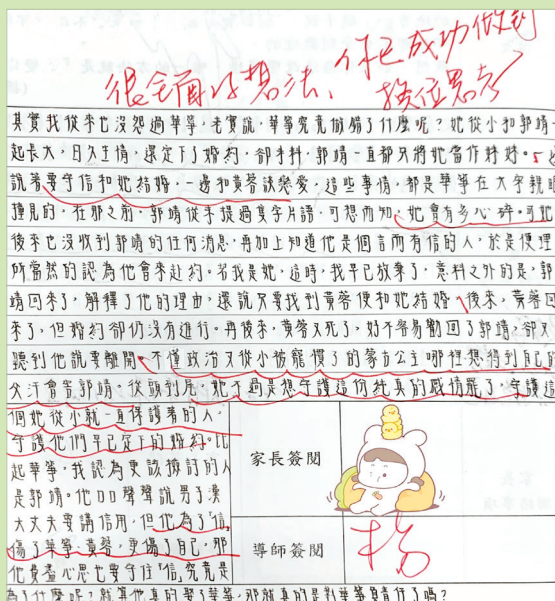 很全面的想法，你已成功做到
換位思考
其實我從來也沒怨過華箏，老實說，華箏究竟做錯了什麼呢？她從小和郭靖一
起長大，日久生情，還定下了婚約，卻不料，郭靖一直都只將她當作妹妹。一邊
說著要守信和她結婚，一邊和黃蓉談戀愛，這些事情，都是華箏在大字親眼
撞見的，在那之前，郭靖從未提過隻字片語，可想而知，她會有多心碎。可她
後來也沒收到郭靖的任何消息，再加上知道他是個言而有信的人，於是便理
所當然的認為他會來赴約。若我是她，這時，我早已放棄了，意料之外的是，郭
靖回來了，解釋了他的理由，還說只要找到黃蓉便和她結婚，後來，黃蓉回
來了，但婚約卻仍沒有進行。再後來，黃蓉又死了，好不容易勸回了郭靖，卻又
聽到他說要離開。不懂政治又從小被寵慣了的蒙古公主哪裡想得到自己的
父汗會害郭靖。從頭到尾，她不過是想守護這份純真的感情罷了，守護這
個她從小就一直保護著的人，
守護他們早已定下的婚約。比
起華箏，我認為更該檢討的人
是郭靖。他口口聲聲說男子漢
大丈夫要講信用，但他為了「信」
傷了華箏、黃蓉，更傷了自己，那
他費盡心思也要守住「信」究竟是
為了什麼呢？就算他真的娶了華箏，那就真的是對華箏負責任了嗎？
家長簽閱
導師簽閱
楊